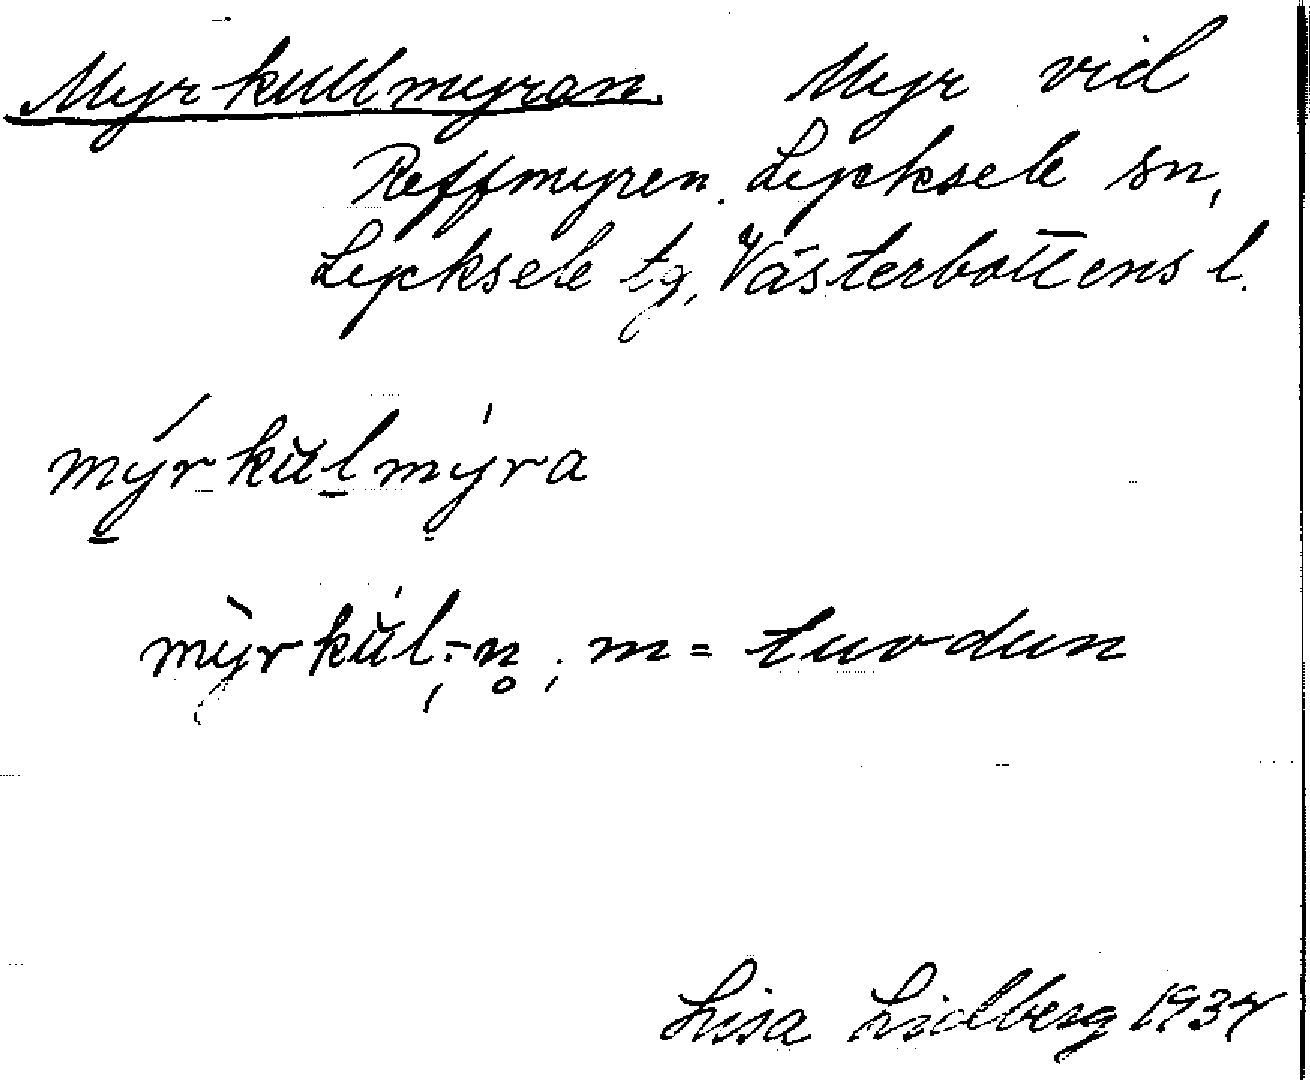 Myrkullmyran. Myr vid
Reffmyren. Lycksele sn,
Lycksele tg, Västerbottens l.
mýrkŭlmýra
mỳrkŭl, -n̥, m = tuvdun
Lisa Lidberg 1937